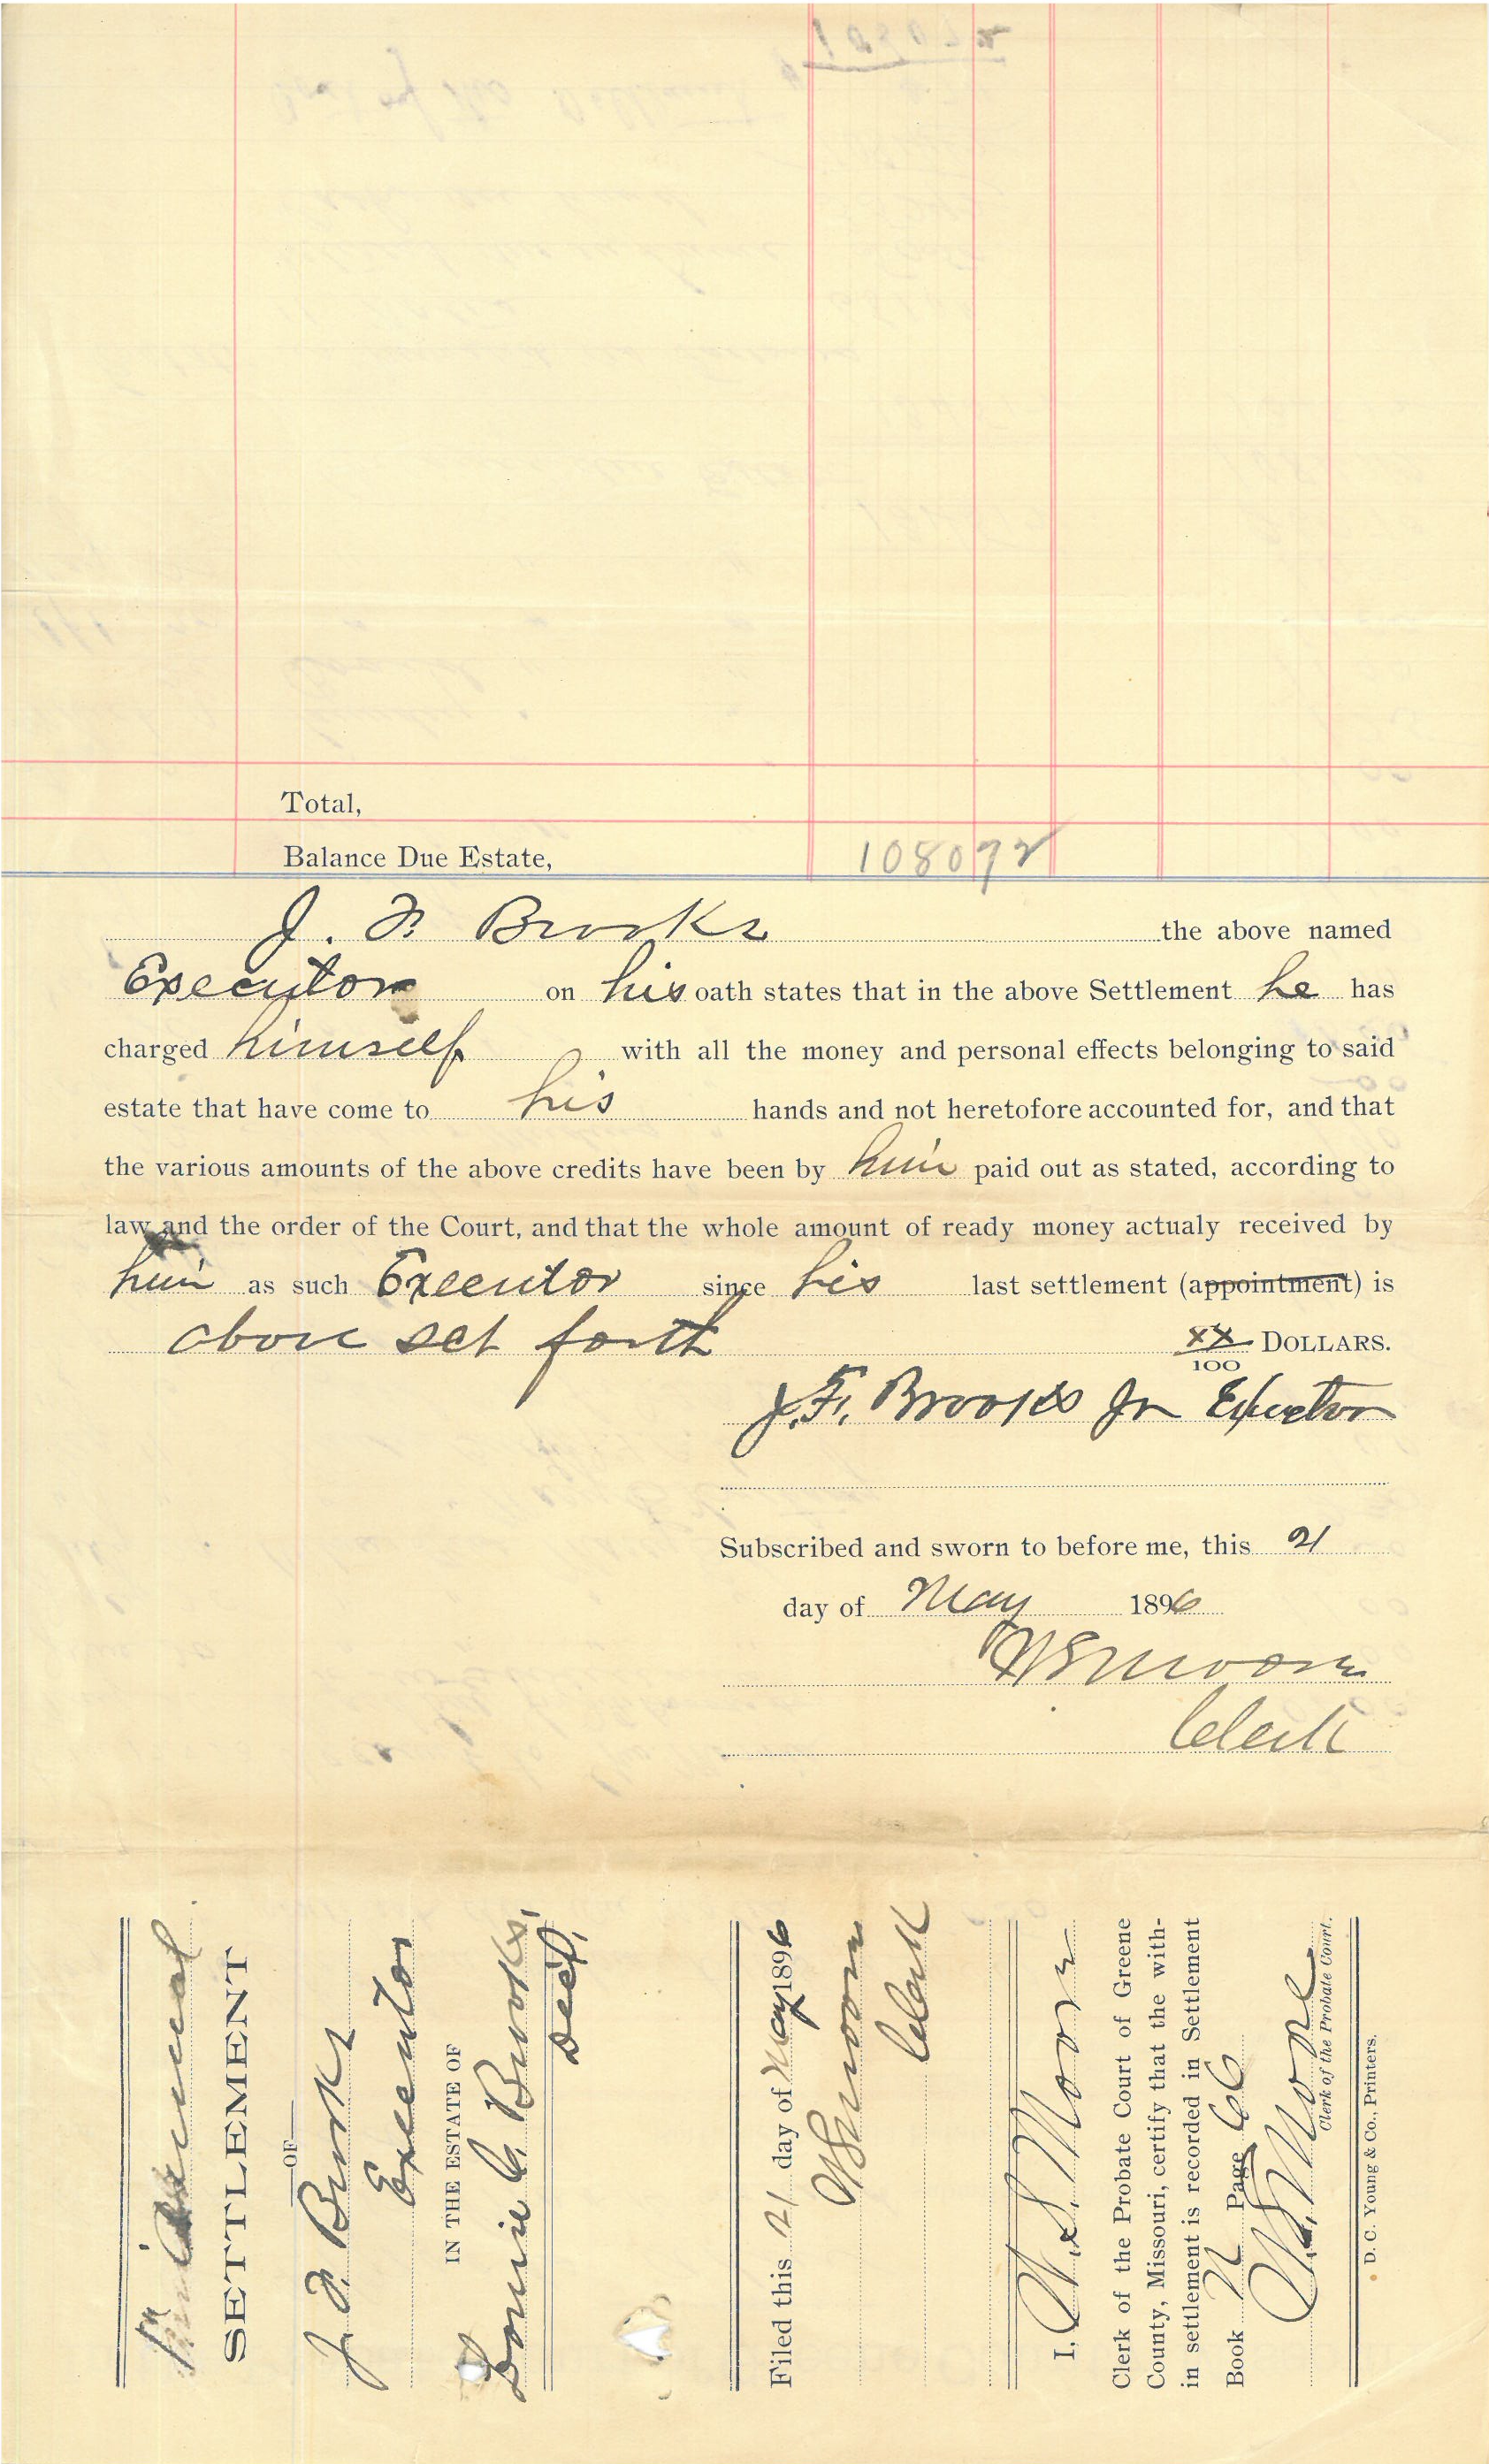 Total,
Balance Due Estate, 1080 72
J. F. Brooks the above named
Executor on his oath states that in the above Settlement he has
charged himself with all the money and personal effects belonging to said
estate that have come to his hands and not heretofore accounted for, and that
the various amounts of the above credits have been by him paid out as stated, according to
law and the order of the Court, and that the whole amount of ready money actualy received by
him as such Executor since his last settlement (appointment) is
above set forth xx/100 DOLLARS.
J. F. Brooks Jr Executor
Subscribed and sworn to before me, this 21
day of May 1896
W S Moore
Clerk
Annual
SETTLEMENT
OF
J. F. Brooks
Executor
IN THE ESTATE OF
C. Brooks,
Decd.
Filed this 21 day of May 1896
W S Moore
Clerk
I, W. S. Moore
Clerk of the Probate Court of Greene
County, Missouri, certify that the with-
in settlement is recorded in Settlement
Book N Page 66
W. S. Moore
Clerk of the Probate Court.
D. C. Young & Co., Printers.